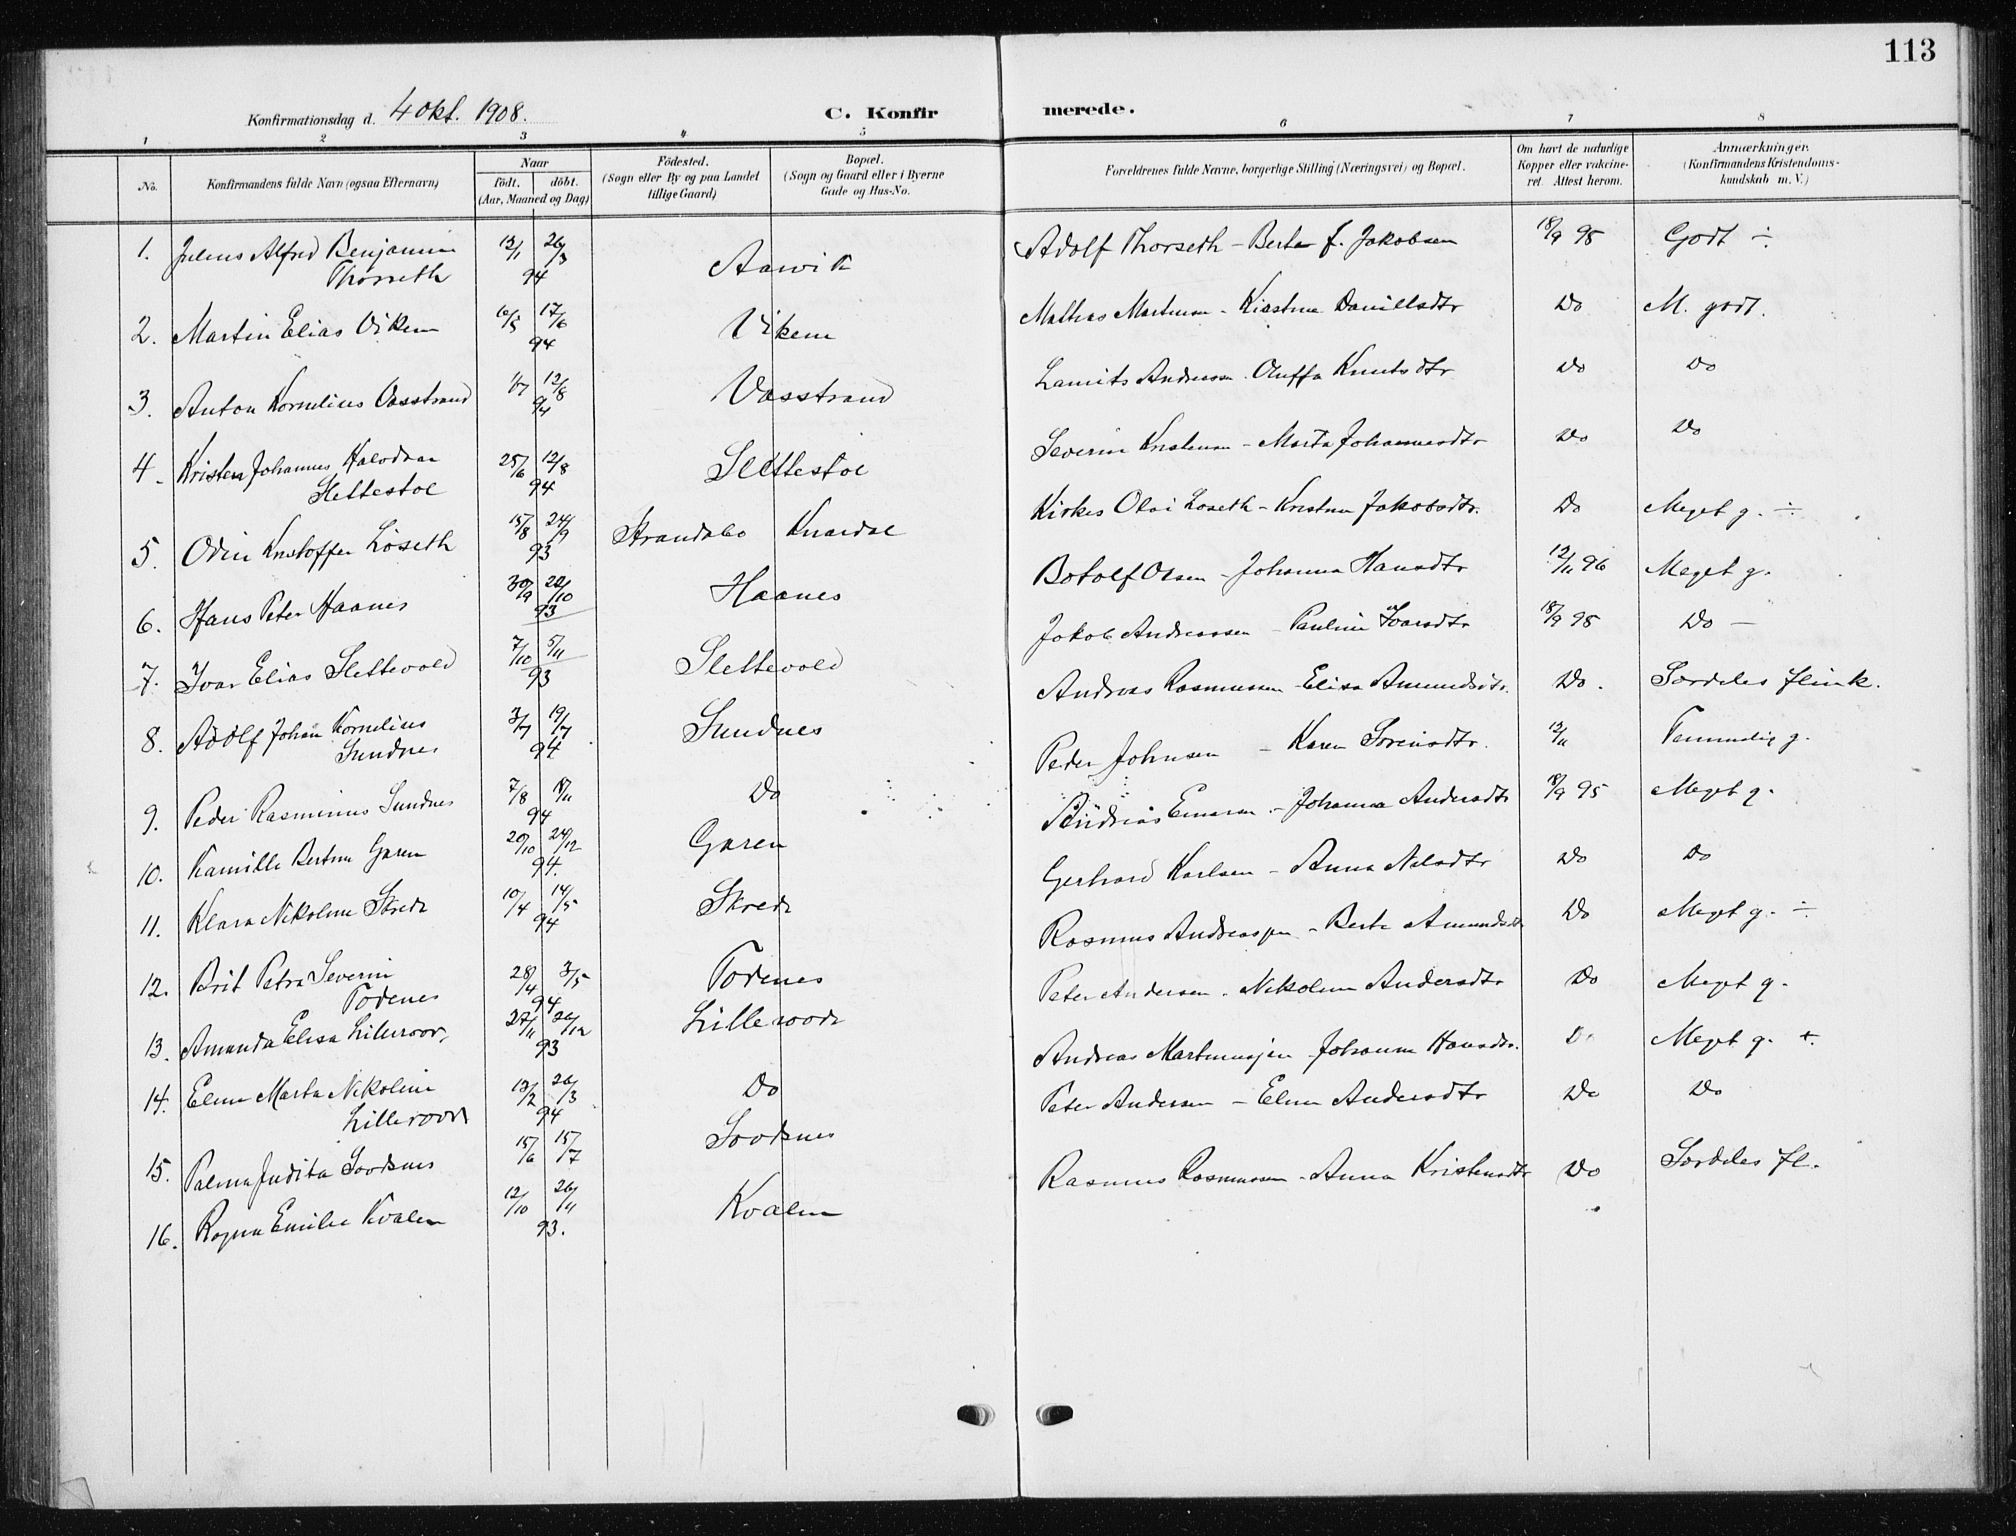 113
Konfirmationsdag d. 4 okt. 1908.
C. Konfirmerede.
1 2 3 4 5 6 7 8
No.
Konfirmandens fulde Navn (ogsaa Efternavn)
Naar
födt. döbt.
(Aar, Maaned og Dag)
Födested.
(Sogn eller By og paa Landet
tillige Gaard)
Bopæl.
(Sogn og Gaard eller i Byerne
Gade og Hus-No.
Forældrenes fulde Navne, borgerlige Stilling (Næringsvei) og Bopæl.
Om havt de naturlige
Kopper eller vakcine-
ret. Attest herom.
Anmærkninger.
(Konfirmandens Kristendoms-
kundskab m. V.)
1. Julius Alfred Benjamin 13/1 26/3 Aarvik Adolf Thorseth - Berte f. Jakobsen 18/9 95 Godt ÷
Thorseth 94
2. Martin Elias Viken 16/5 17/6 Viken Mathias Martinsen - Kirstine Danielsdtr Do M. godt.
94
3. Anton Kornelius Vasstrand 1/7 12/8 Vasstrand Andersen Oluffa Knutsdtr Do Do
94
4. Kristen Johannes Halvdan 25/6 12/8 Slettestøl Severin Kristensen - Marta Johannesdtr Do Do
Slettestøl 94
5. Odin Kristoffer Løseth 15/8 24/9 Strandabø Knardal Kirkes Olai Løseth - Kristine Jakobsdtr. Do Meget g. ÷
93
6. Hans Peter Haanes 30/9 22/10 Haanes Botolf Olsen - Johanna Hansdtr 12/11 96 Meget g.
93
7. Ivar Elias Slettevold 7/10 5/11 Slettevold Jakob Andreassen - Pauline Ivarsdtr 18/9 95 Do -
93
8. Adolf Johan Kornelius 3/7 19/7 Sundnes Andreas Rasmussen - Elisa Amundsdtr. Do. Særdeles flink.
Sundnes 94
9. Peder Rasminus Sundnes 7/8 18/11 Do Peder Johnsen - Karen Sørensdtr. 12/11 Temmelig g.
94
10. Kamille Bertine Garen 20/10 24/12 Garen Johanna Andersdtr 18/9 95 Meget g.
94.
11. Klara Nikoline Skrede 10/4 14/5 Skrede Gerhard Karlsen - Anna Nilsdtr Do Do
94
12. Brit Petra Severin 28/4 3/5 Todenes Rasmus Andreassen - Berte Amundsdtr Do Meget g. ÷
Todenes 94
13. Amanda Elisa Lillevoov 27/11 26/12 Lillevoode Peter Andersen - Nikoline Andersdtr Do Meget g.
93
14. Eline Marta Nikoline 13/2 26/3 Do Andreas Martinussen Johanne Hansdtr. Do Meget g. +.
Lillevoode 94
15. Palma Judita Soodsnes 15/6 15/7 Soodsnes Peter Andersen - Eline Andersdtr Do Do
16. Ragna Emilie Kvalen 12/10 26/11 Kvalen Rasmus Rasmussen - Anna Kristensdtr Do Særdeles fl.
93.